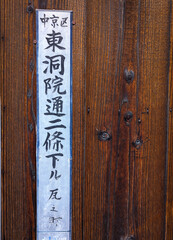 中京区
東洞院通二條下ル瓦之町